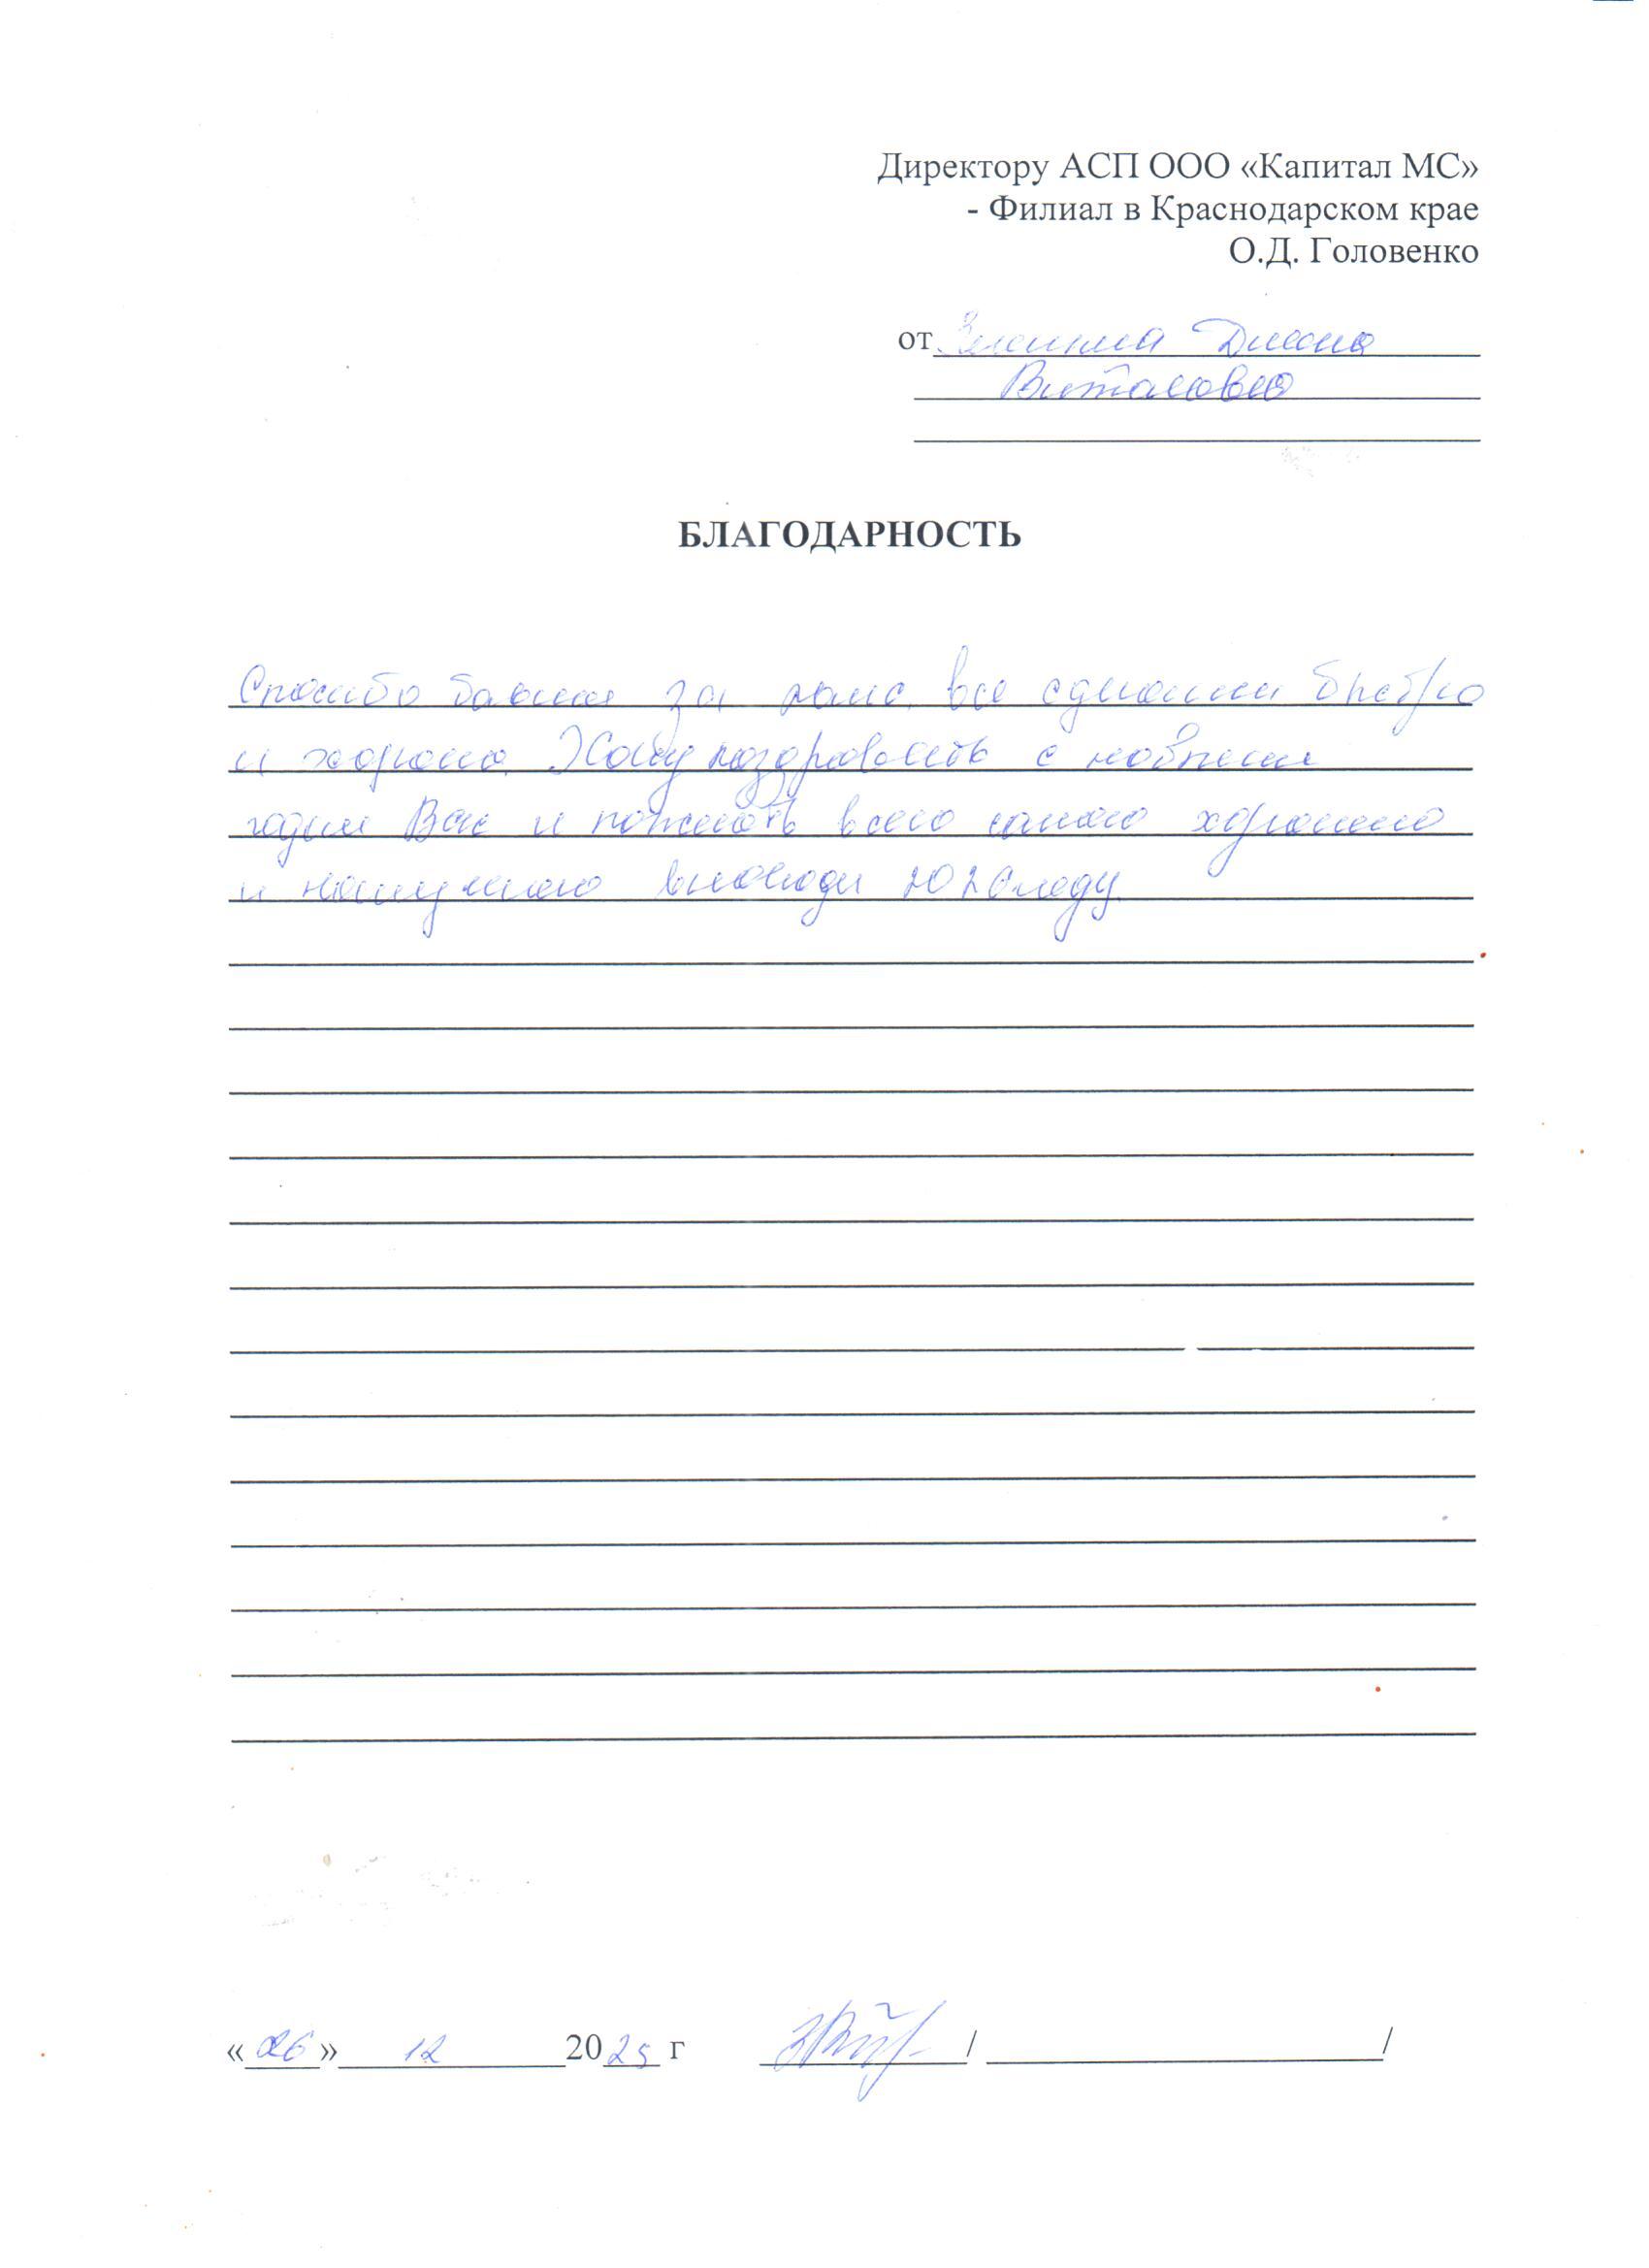 Директору АСП ООО «Капитал МС»
- Филиал в Краснодарском крае
О.Д. Головенко
от Диана
БЛАГОДАРНОСТЬ
Спасибо за все сделали
и хорошо. Хочу поздравить с новым
годом Вас и пожелать всего самого хорошего
и наилучшего 2026 году.
«26» 12 2025 г / /